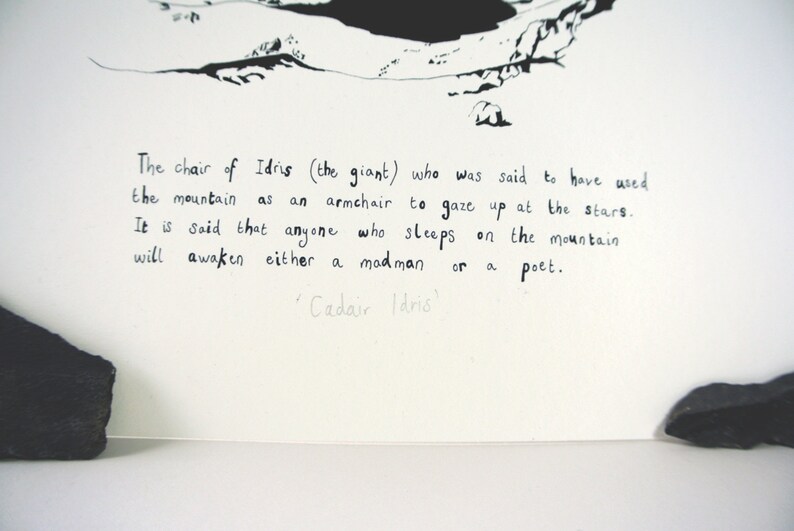 The chair of Idris (the giant) who was said to have used
the mountain as an armchair to gaze up at the stars.
It is said that anyone who sleeps on the mountain
will awaken either a madman or a poet.
'Cadair Idris'